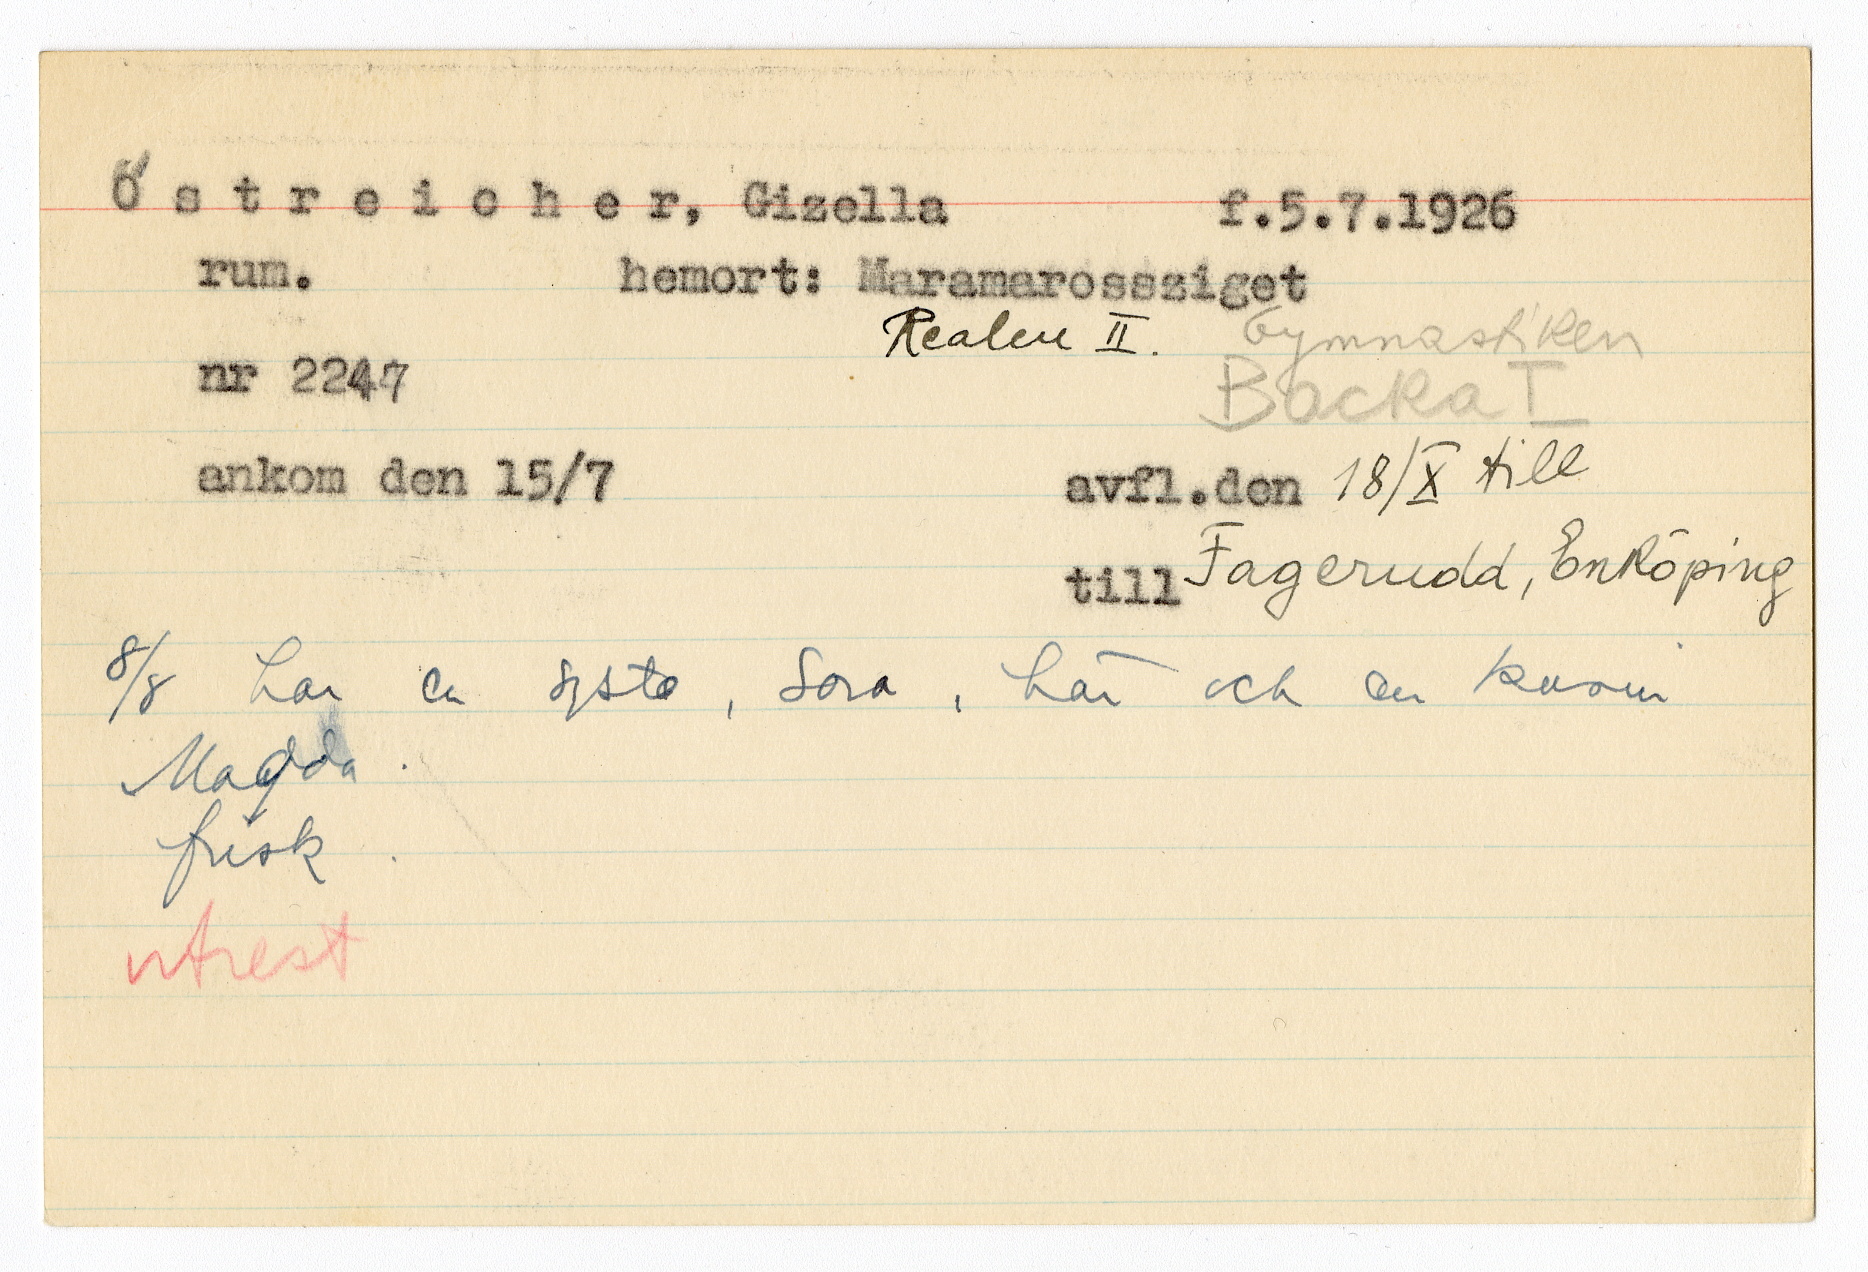 Ö s t r e i c h e r, Gizella f.5.7.1926
rum. hemort: Maramarossziget
Realen II. Gymnastiken
nr 2247 Backa I
ankom den 15/7 avfl.den 18/X till
till Fagerudd, Enköping
8/8 har en syster, Sora, här och en kusin
Magda.
frisk.
utrest